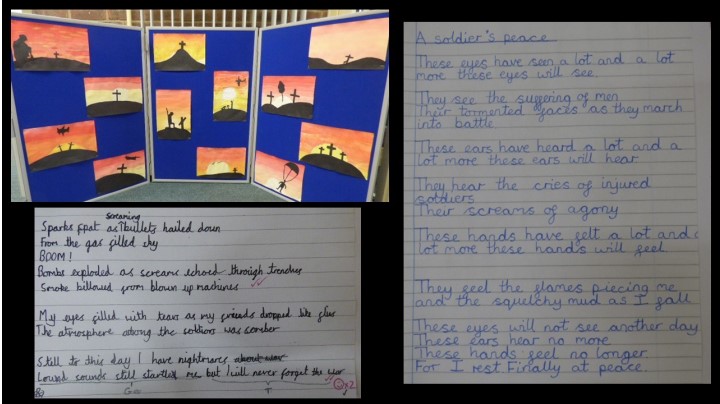 A soldier's peace
These eyes have seen a lot and a lot
more these eyes will see.
They see the suffering of men
Their tormented faces as they march
into battle
These ears have heard a lot and a
lot more these ears will hear
They hear the cries of injured
soldiers
Their screams of agony
These hands have felt a lot and a
lot more these hands will feel.
They feel the flames piecing me
and the squelchy mud as I fall
These eyes will not see another day
These ears hear no more
These hands feel no longer.
For I rest Finally at peace.
screaming
Sparks spat as bullets hailed down
From the gas filled sky
BOOM!
Bombs exploded as screams echoed through trenches
Smoke billowed from blown up machines
My eyes filled with tears as my friends dropped like flies
The atmosphere among the soldiers was somber
Still to this day I have nightmares about war
Lowed sounds still startled me but I will never forget the war